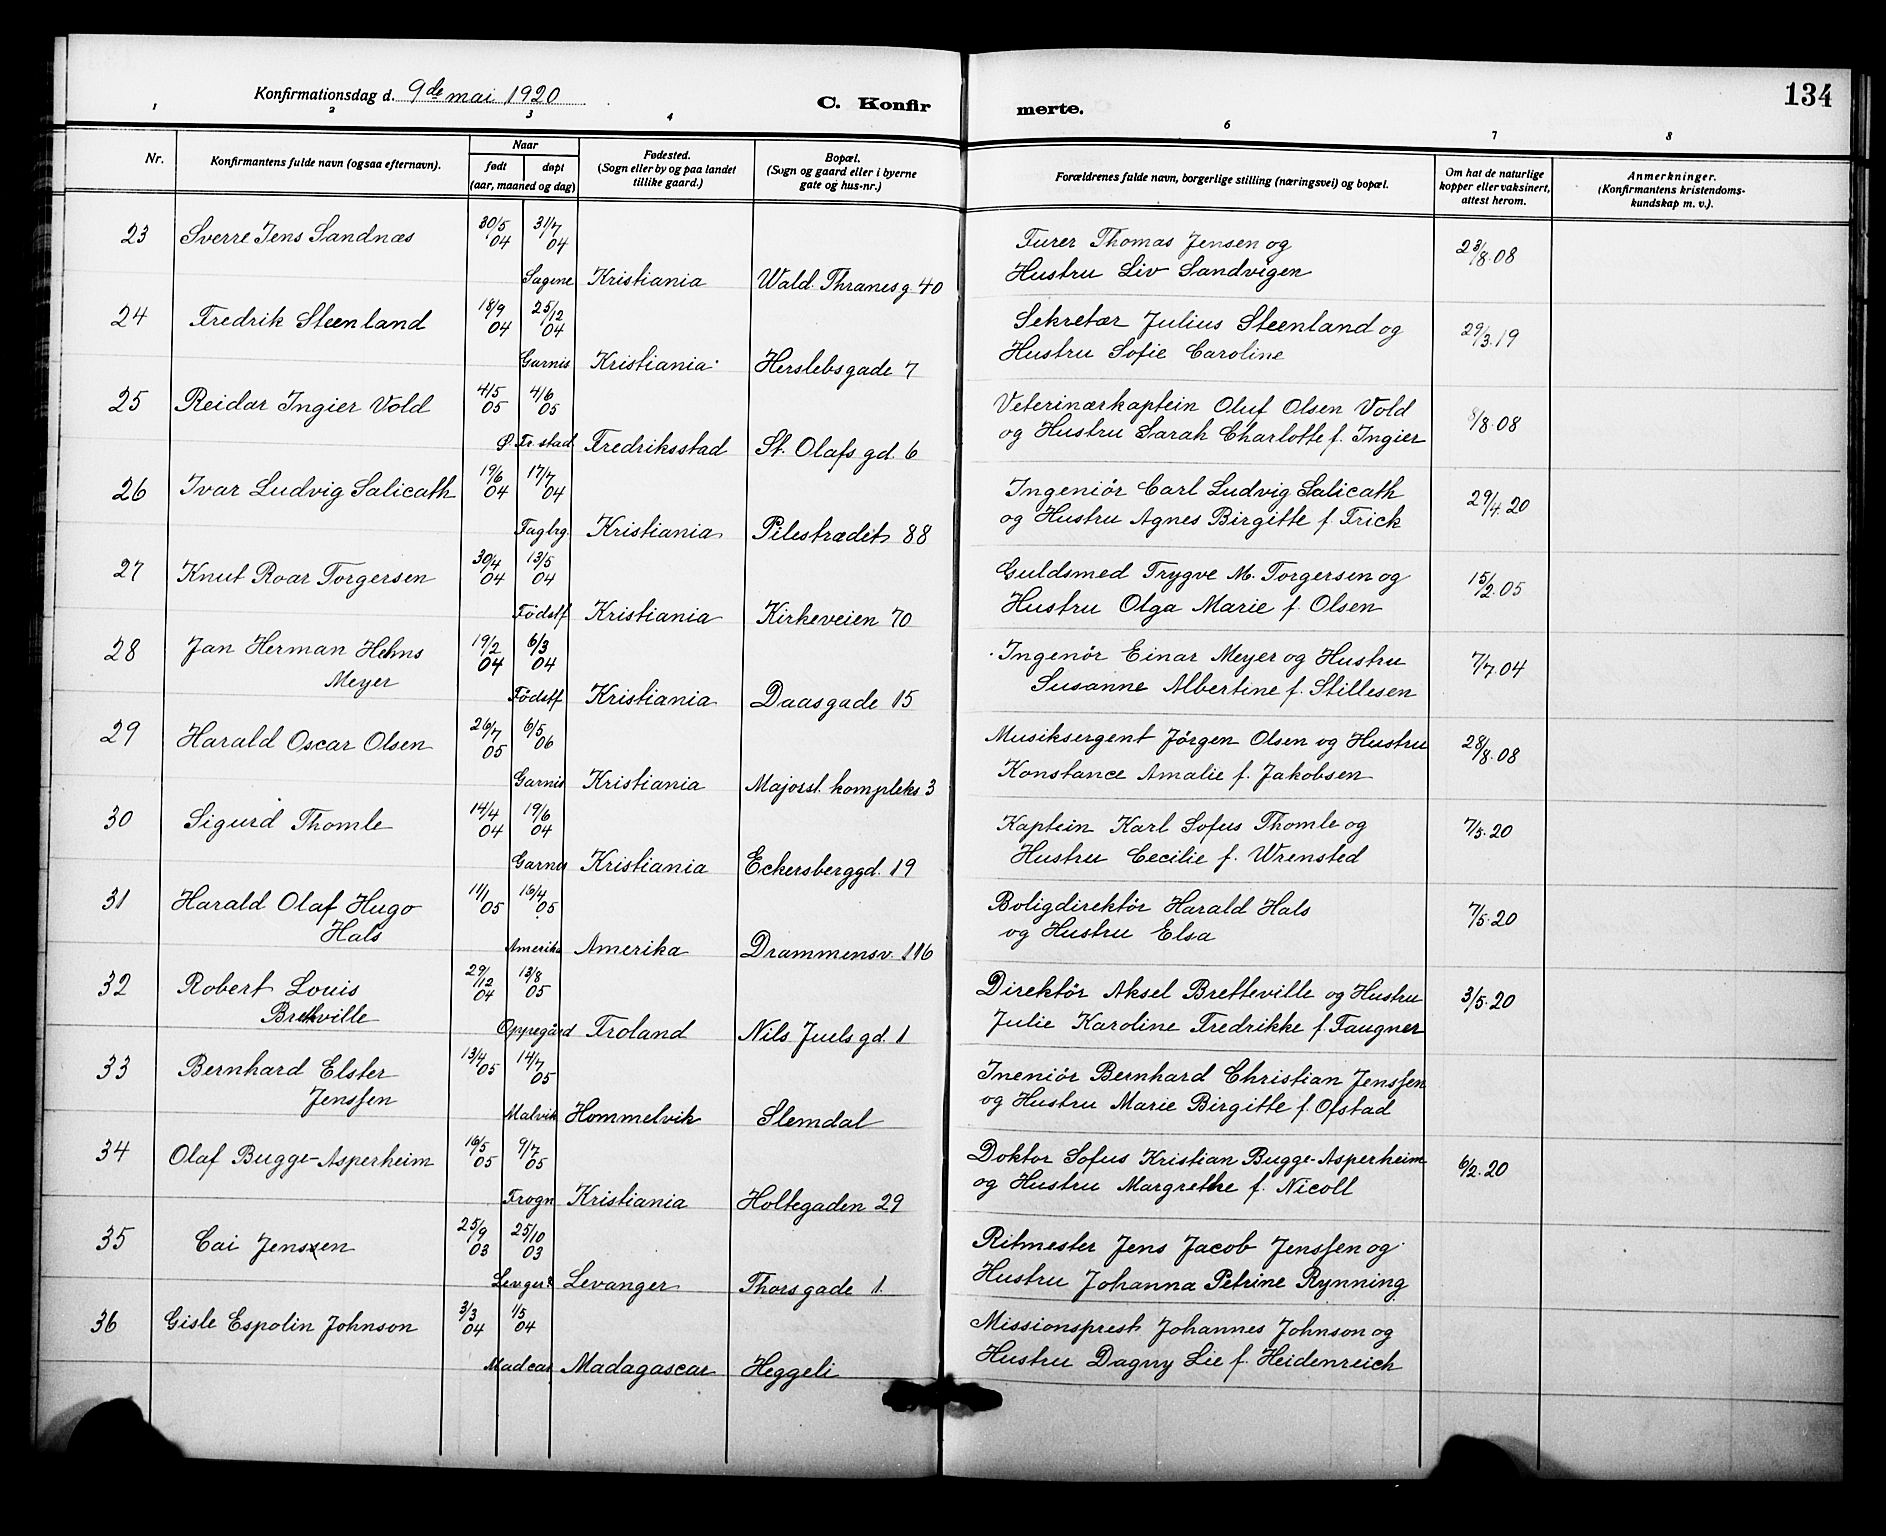 134
Konfirmationsdag d. 9de mai 1920
C. Konfirmerte.
1 2 3 4 6 7 8
Nr.
Konfirmantens fulde navn (ogsaa efternavn).
Naar
født døpt
(aar, maaned og dag)
Fødested.
(Sogn eller by og paa landet
tillike gaard.)
Bopæl.
(Sogn og gaard eller i byerne
gate og hus-nr.)
Forældrenes fulde navn, borgerlige stilling (næringsvei) og bopæl.
Om hat de naturlige
kopper eller vaksinert,
attest herom.
Anmerkninger.
(Konfirmantens kristendoms-
kundskap m. v.).
23 Sverre Jens Sandnæs 30/5 04 31/7 04 Furer Thomas Jensen og 23/8.08
Sagene Kristiania Wald. Thranesg. 40 Hustru Liv Sandvigen
24 Fredrik Steenland 18/9 04 25/12 04 Sekretær Julius Steenland og 29/3.19
Garnis Kristiania Herslebsgade 7 Hustru Sofie Caroline
25 Reidar Ingier Vold 4/5 05 4/6 05 Veterinærkaptein Oluf Olsen Vold /8.08
Ø. Fr.stad Fredriksstad St. Olafs gd. 6 og Hustru Sarah Charlotte f. Ingier
26 Ivar Ludvig Salicath 19/6 04 17/7 04 Ingeniör Carl Ludvig Salicath 29/4.20
Fagbrg. Kristiania Pilestrædet 88 og Hustru Agnes Birgitte f. Frick
27 Knut Roar Torgersen 30/4 04 13/5 04 Guldsmed Trygve M. Torgersen og 15/2.05
Födstf Kristiania Kirkeveien 70 Hustru Olga Marie f. Olsen
28 Jan Herman Hehns 19/2 04 6/3 04 Ingenör Einar Meyer og Hustru 7/7.04
Meyer Födstf Kristiania Daasgade 15 Susanne Albertine f. Stillesen
29 Harald Oscar Olsen 26/7 05 6/5 06 Musiksergent Jörgen Olsen og Hustru 28/8.08
Garnis Kristiania Majorst. kompleks 3 Konstance Amalie f. Jakobsen
30 Sigurd Thomle 14/4 04 19/6 04 Kaptein Karl Sofus Thomle og 7/5.20
Garnis Kristiania Eckersberggd. 19 Hustru Cecilie f. Wrensted
31 Harald Olaf Hugo 11/1 05 16/4 05 Boligdirektör Harald Hals 7/5.20
Hals Amerika Amerika Drammensv. 116 og Hustru Elsa
32 Robert Louis 29/12 04 13/8 05 Direktör Aksel Bretteville og Hustru 3/5.20
Bretteville Oppegård Froland Nils Juels gd. 1 Julie Karoline Fredrikke f. Faugner
33 Bernhard Elster 13/4 05 14/7 05 Ineniör Bernhard Christian Jenssen
Jenssen Malvik Hommelvik Slemdal og Hustru Marie Birgitte f. Ofstad
34 Olaf Bugge-Asperheim 16/5 05 9/7 05 Doktor Sofus Kristian Bugge-Asperheim 6/2.20
Frogn Kristiania Holtegaden 29 og Hustru Margrethe f. Nicoll
35 Cai Jenssen 25/9 03 25/10 03 Ritmester Jens Jacob Jenssen og
Levger. Levanger Thorsgade 1. Hustru Johanna Petrine Rynning
36 Gisle Espolin Johnson 3/3 04 1/5 04 Missionsprest Johannes Johnson og
Madcar Madagascar Heggeli Hustru Dagny Lie f. Heidenreich